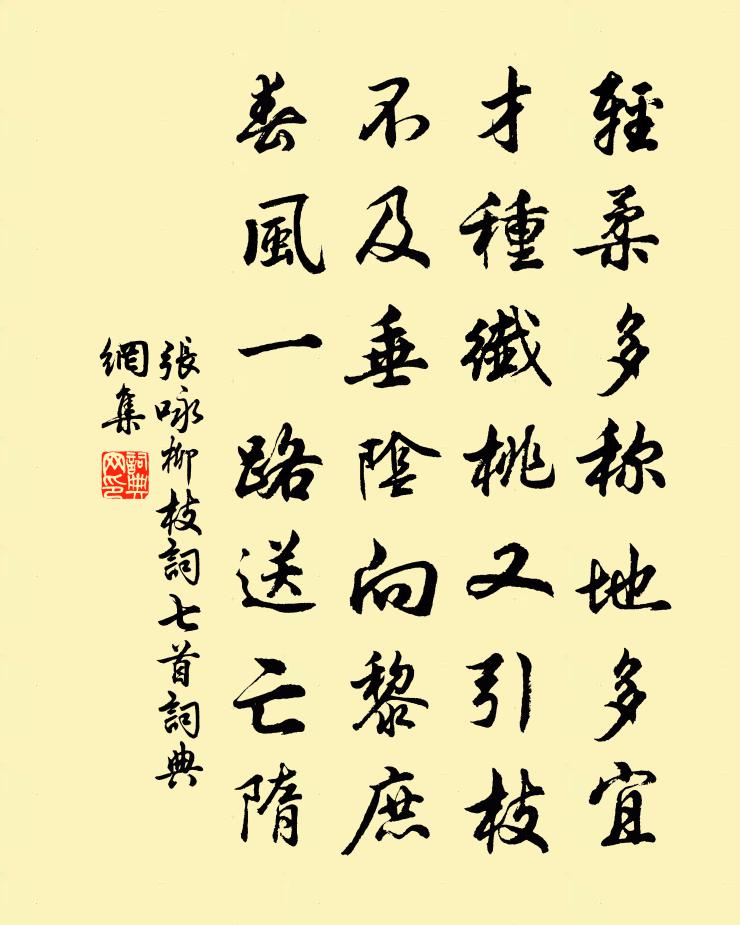 輕柔多称地多宜
才種纖桃又引枝
不及垂陰向黎庶
春風一路送亡隋
張咏柳枝詞七首詞典
網集
詞典
网印